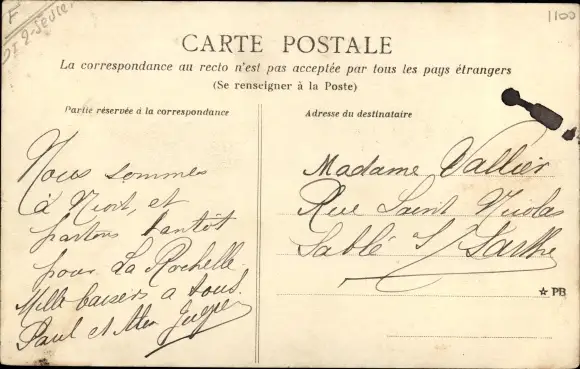 F
D 2-Sèvres
1100
CARTE POSTALE
La correspondance au recto n'est pas acceptée par tous les pays étrangers
(Se renseigner à la Poste)
Partie réservée à la correspondance
Nous sommes
à Niort, et
partons bantôt
pour La Rochelle.
Mille baisers a tous.
Paul et
Adresse du destinataire
Madame Vallier
Rue Saint Nicolas
Sablé S/ Sarthe
☆ PB